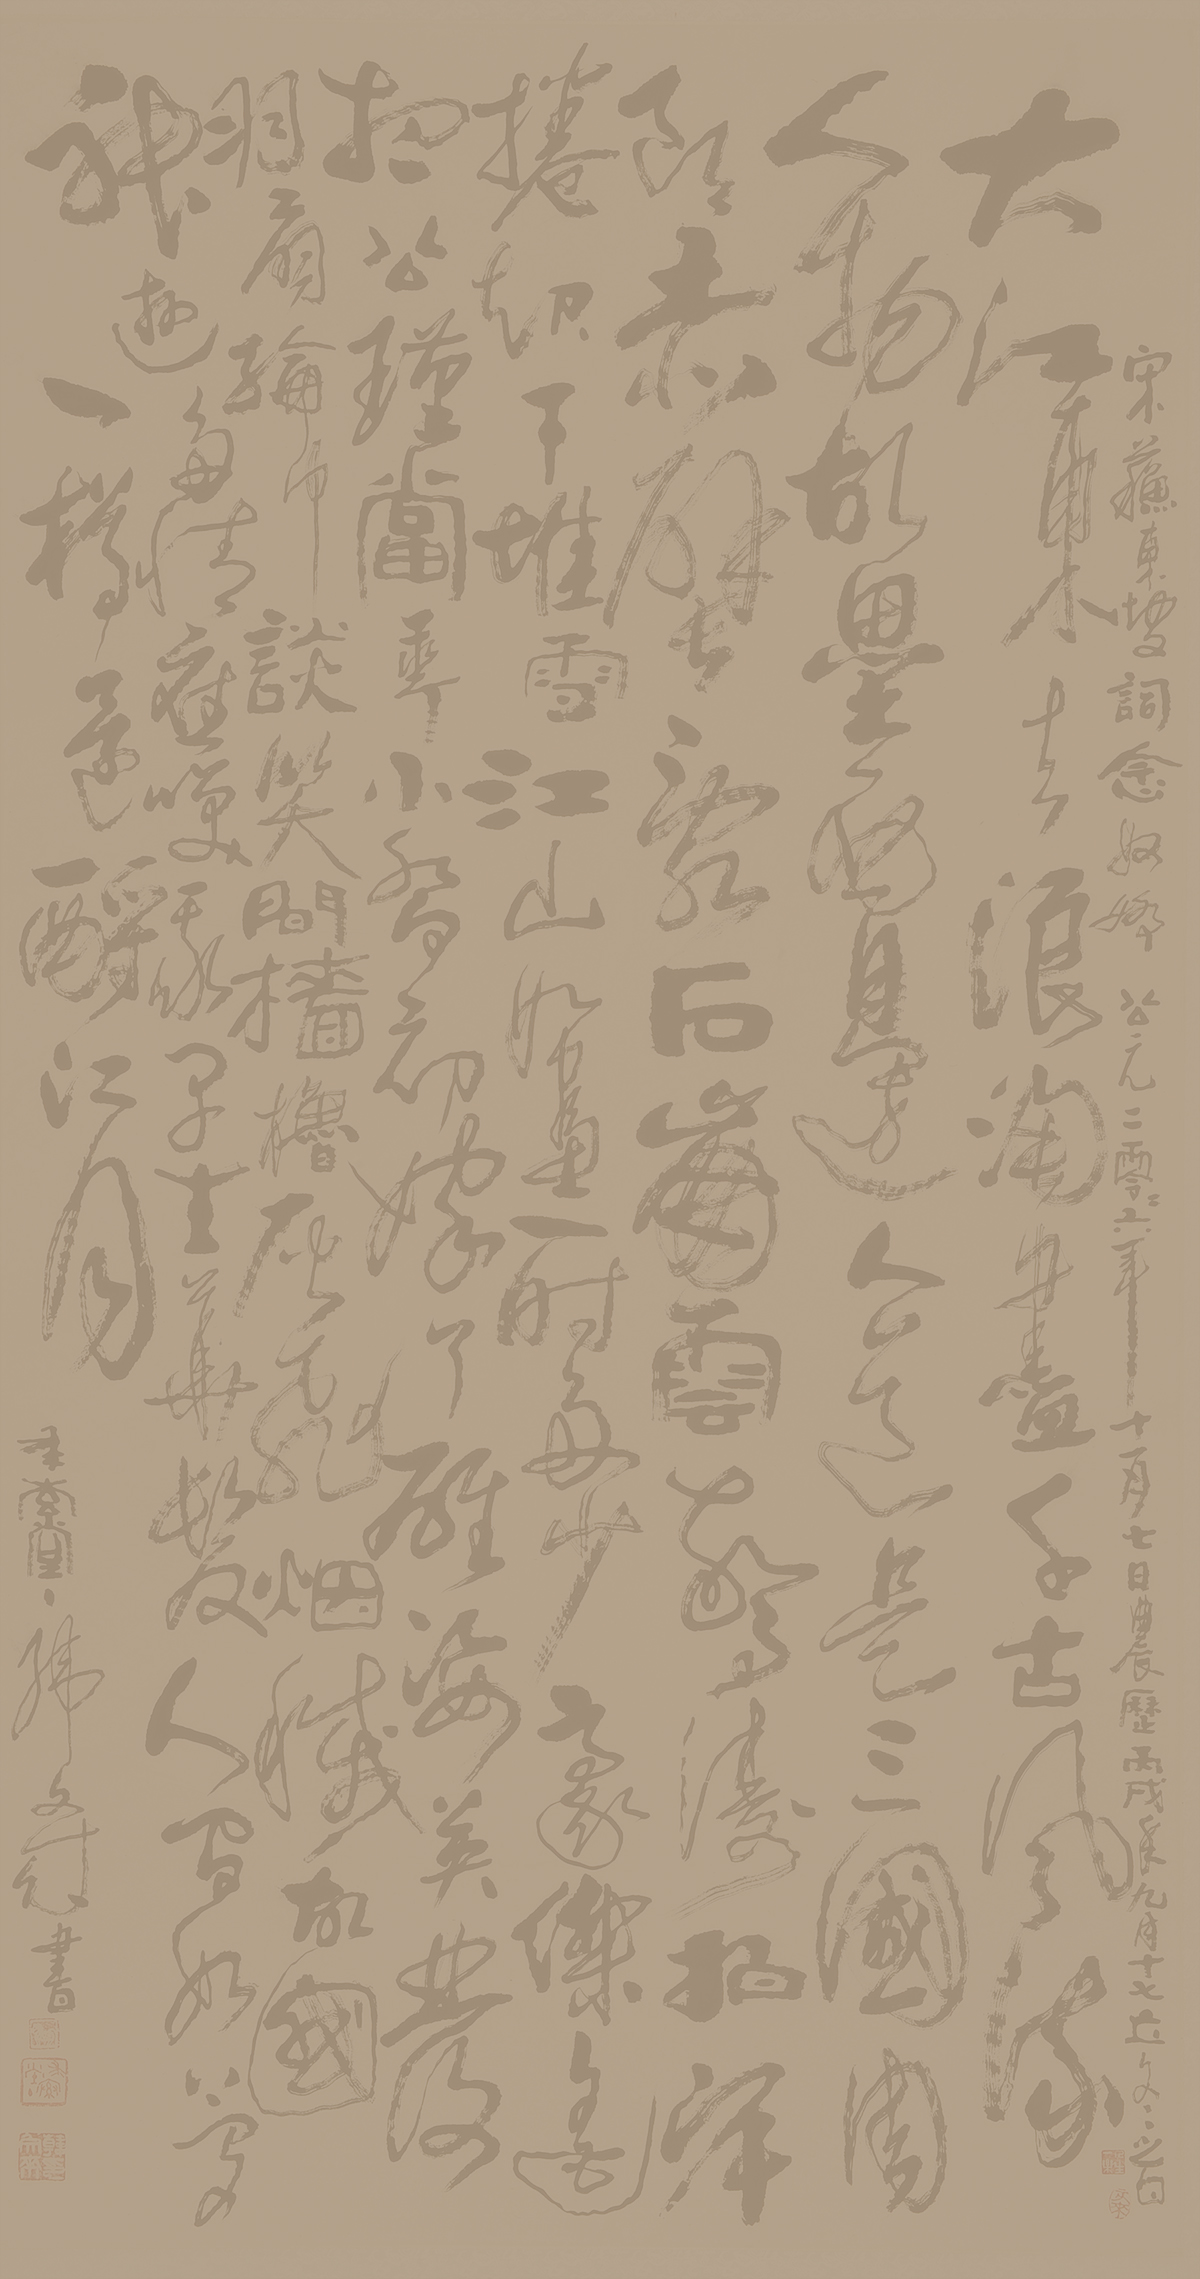 宋蘇東坡詞念奴嬌 公元二零零六年十一月七日農歷丙戌年九月十七
大江東去浪淘盡千古風流
人物故壘西邊人道是三國周
郎赤壁亂石崩雲驚濤拍岸
捲起千堆雪江山如畫一時多少豪傑遙
想公瑾當年小喬初嫁了雄姿英發
羽扇綸巾談笑間檣櫓灰飛烟滅故國
神遊多情應笑我早生華髮人間如夢
一樽還酹江月
書